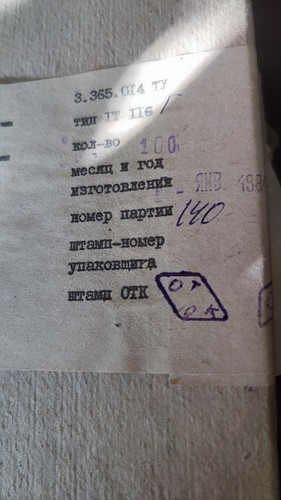 3.365.014 ТУ
тип 1Т II6 Г
кол-во 100
месяц и год
изготовлений ЯНВ. 198
номер партии 140
штамп-номер
упаковщица
штамп ОТК ОТ
ОК